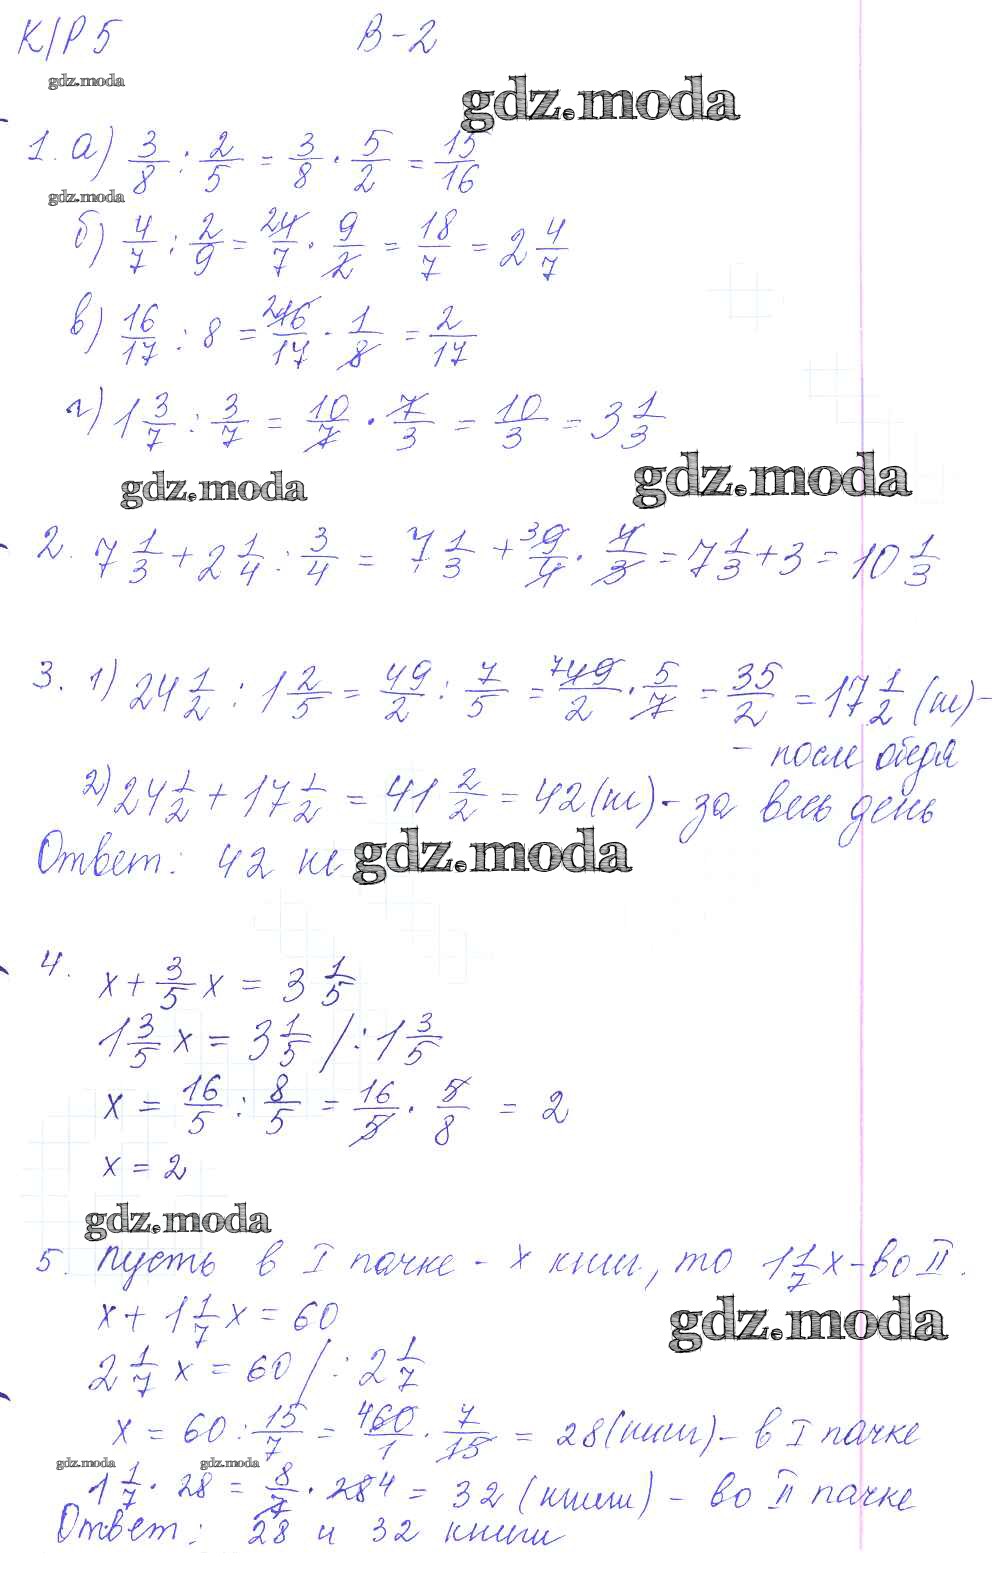 К/Р 5 В-2
gdz.moda gdz.moda
1. а) 3/8 : 2/5 = 3/8 · 5/2 = 15/16
gdz.moda
б) 4/7 : 2/9 = 2 4/7 · 9/2 = 18/7 = 2 4/7
в) 16/17 : 8 = 2 16/17 · 1/8 = 2/17
г) 1 3/7 : 3/7 = 10/7 · 7/3 = 10/3 = 3 1/3
gdz.moda gdz.moda
2. 7 1/3 + 2 1/4 : 3/4 = 7 1/3 + 3 9/4 · 4/3 = 7 1/3 + 3 = 10 1/3
3. 1) 24 1/2 : 1 2/5 = 49/2 : 7/5 = 7 49/2 · 5/7 = 35/2 = 17 1/2 (м) -
- после обеда
2) 24 1/2 + 17 1/2 = 41 2/2 = 42 (м) - за весь день
Ответ: 42 м gdz.moda
4. x + 3/5 x = 3 1/5
1 3/5 x = 3 1/5 / : 1 3/5
x = 16/5 : 8/5 = 16/5 · 5/8 = 2
x = 2
gdz.moda
5. Пусть в I пачке - x книг, то 1 1/7 x - во II.
x + 1 1/7 x = 60 gdz.moda
2 1/7 x = 60 / : 2 1/7
x = 60 : 15/7 = 4 60/1 · 7/15 = 28 (книг) - в I пачке
gdz.moda gdz.moda
1 1/7 · 28 = 8/7 · 28 4 = 32 (книги) - во II пачке
Ответ: 28 и 32 книги